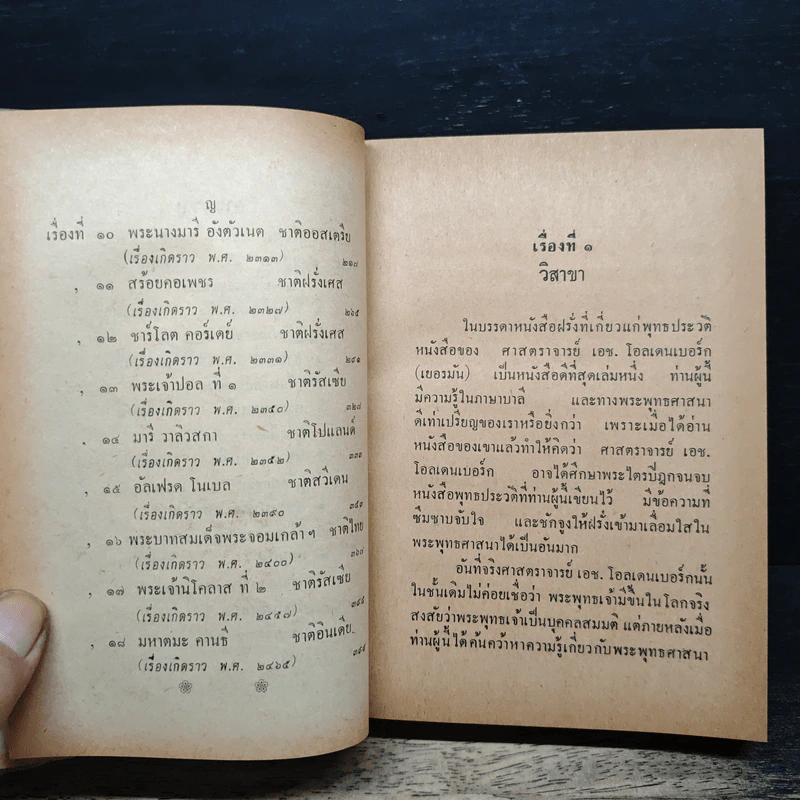 ญ
เรื่องที่ ๑๐ พระนางมารี อังตัวเนต ชาติออสเตรีย
(เรื่องเกิดราว พ.ศ. ๒๓๑๓) ๒๑๗
, ๑๑ สร้อยคอเพชร ชาติฝรั่งเศส
(เรื่องเกิดราว พ.ศ. ๒๓๒๗) ๒๖๕
, ๑๒ ชาร์โลต คอร์เดย์ ชาติฝรั่งเศส
(เรื่องเกิดราว พ.ศ. ๒๓๓๑) ๒๙๑
, ๑๓ พระเจ้าปอล ที่ ๑ ชาติรัสเซีย
(เรื่องเกิดราว พ.ศ. ๒๓๕๐) ๓๒๗
, ๑๔ มารี วาลิวสกา ชาติโปแลนด์
(เรื่องเกิดราว พ.ศ. ๒๓๕๒)
, ๑๕ อัลเฟรด โนเบล ชาติสวีเดน
(เรื่องเกิดราว พ.ศ. ๒๓๙๐
, ๑๖ พระบาทสมเด็จพระจอมเกล้าฯ ชาติไทย
(เรื่องเกิดราว พ.ศ. ๒๔๐๐) ๓๖๗
, ๑๗ พระเจ้านิโคลาส ที่ ๒ ชาติรัสเซีย
(เรื่องเกิดราว พ.ศ. ๒๔๕๗)
, ๑๘ มหาตมะ คานธี ชาติอินเดีย
(เรื่องเกิดราว พ.ศ. ๒๔๖๕)
เรื่องที่ ๑
วิสาขา
ในบรรดาหนังสือฝรั่งที่เกี่ยวแก่พุทธประวัติ
หนังสือของ ศาสตราจารย์ เอช. โอลเดนเบอร์ก
(เยอรมัน) เป็นหนังสือดีที่สุดเล่มหนึ่ง ท่านผู้นี้
มีความรู้ในภาษาบาลี และทางพระพุทธศาสนา
ดีเท่าเปรียญของเราหรือยิ่งกว่า เพราะเมื่อได้อ่าน
หนังสือของเขาแล้วทำให้คิดว่า ศาสตราจารย์ เอช.
โอลเดนเบอร์ก อาจได้ศึกษาพระไตรปิฎกจนจบ
หนังสือพุทธประวัติที่ท่านผู้นี้เขียนไว้ มีข้อความที่
ซึมซาบจับใจ และชักจูงให้ฝรั่งเข้ามาเลื่อมใสใน
พระพุทธศาสนาได้เป็นอันมาก
อันที่จริงศาสตราจารย์ เอช. โอลเดนเบอร์กนั้น
ในชั้นเดิมไม่ค่อยเชื่อว่า พระพุทธเจ้ามีขึ้นในโลกจริง
สงสัยว่าพระพุทธเจ้าเป็นบุคคลสมมติ แต่ภายหลังเมื่อ
ท่านผู้นี้ได้ค้นคว้าหาความรู้เกี่ยวกับพระพุทธศาสนา